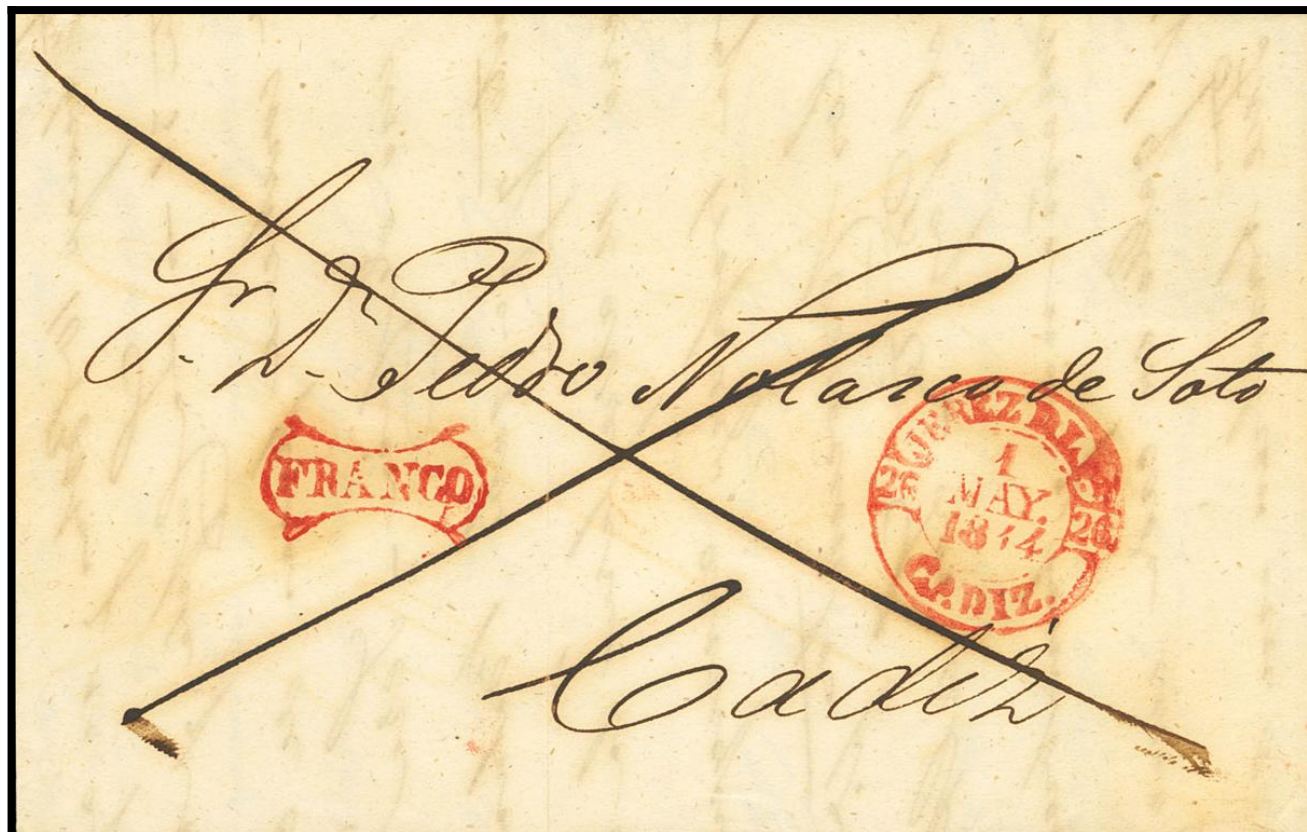 Sr. Dn. Pedro Nolasco de Soto
FRANCO
JEREZ D LA F.
26 26
1
MAY.
1844
CADIZ.
Cadiz